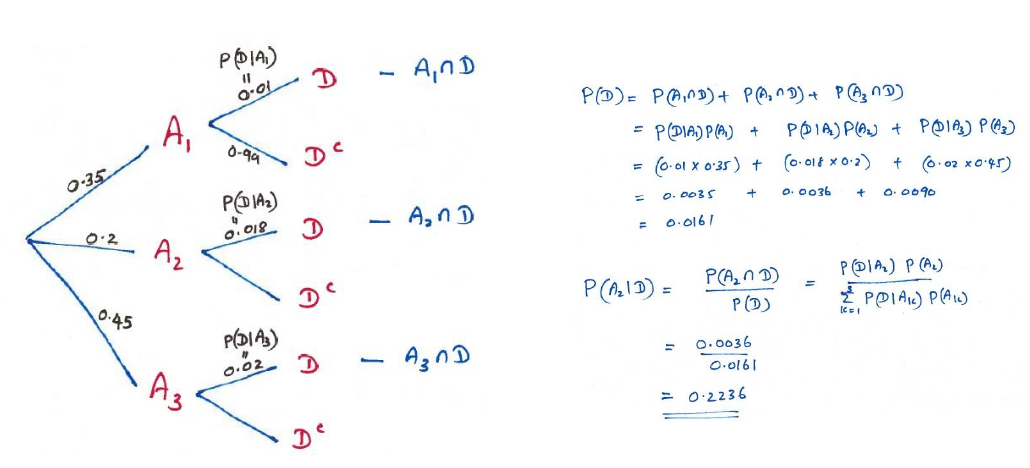 P(D|A₁)
"
0.01
D - A₁∩D
0.35
A₁
0.99
Dᶜ
P(D|A₂)
"
0.018
D - A₂∩D
0.2
A₂
Dᶜ
0.45
P(D|A₃)
"
0.02
D - A₃∩D
A₃
Dᶜ
P(D) = P(A₁∩D) + P(A₂∩D) + P(A₃∩D)
= P(D|A₁)P(A₁) + P(D|A₂)P(A₂) + P(D|A₃)P(A₃)
= (0.01 x 0.35) + (0.018 x 0.2) + (0.02 x 0.45)
= 0.0035 + 0.0036 + 0.0090
= 0.0161
P(A₂|D) = P(A₂∩D) / P(D) = P(D|A₂) P(A₂) / 3 Σ k=1 P(D|Aₖ) P(Aₖ)
= 0.0036 / 0.0161
= 0.2236